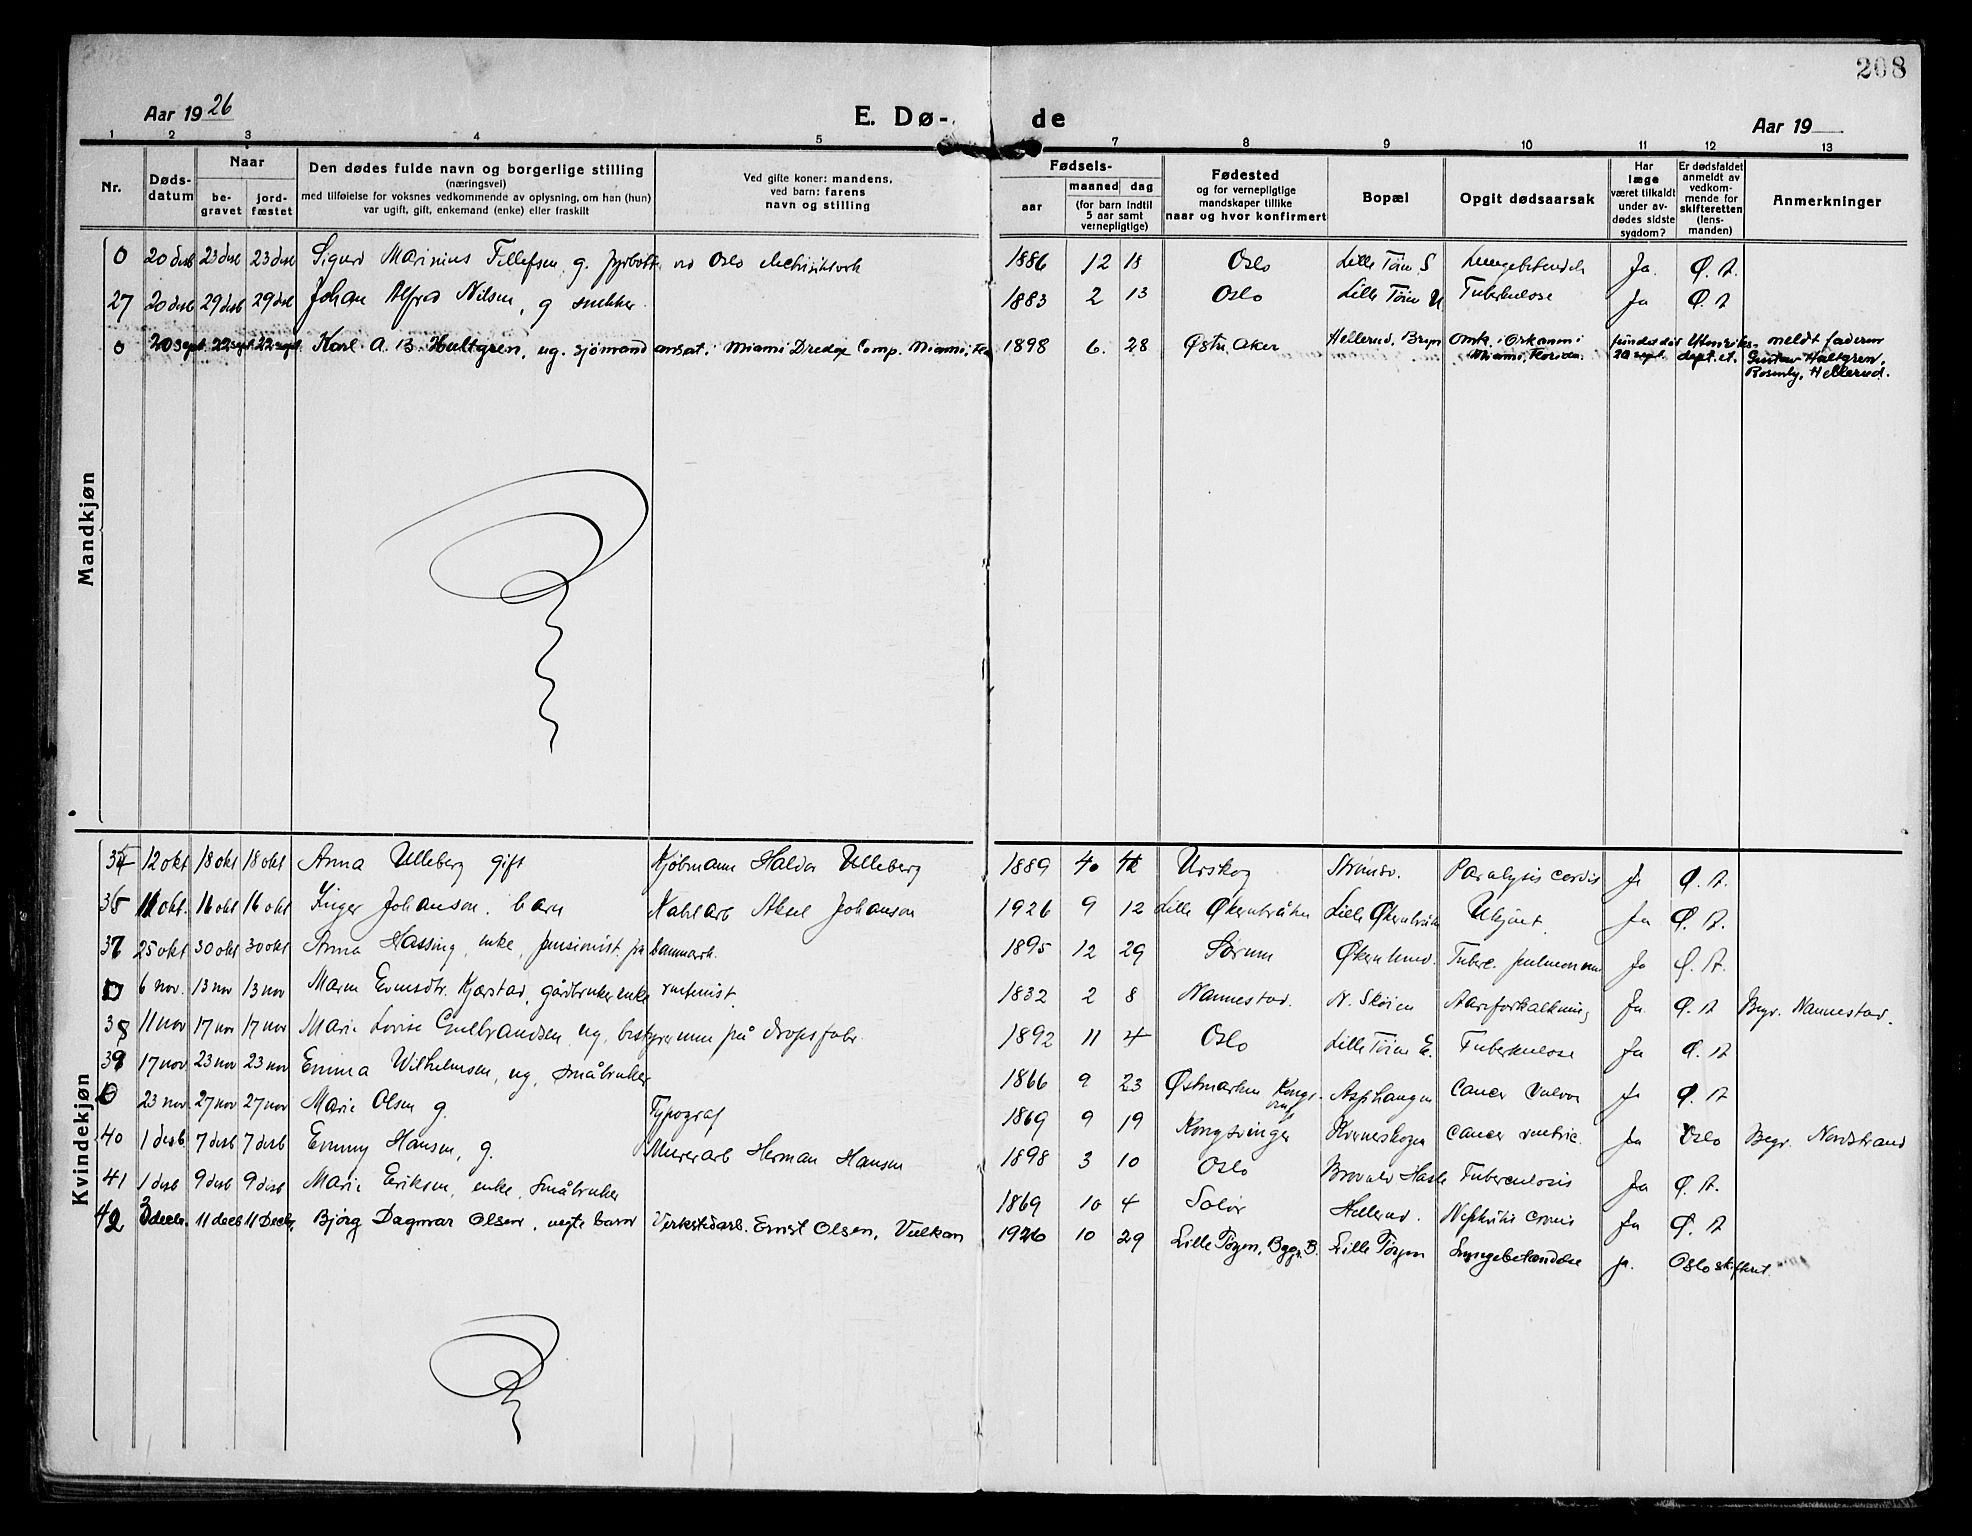 208
Aar 1926 E. Dø- de Aar 19
1 2 3 4 5 7 8 9 10 11 12 13
Nr.
Døds-
datum
Naar
be-
gravet
jord-
fæstet
Den dødes fulde navn og borgerlige stilling
(næringsvei)
med tilføielse for voksnes vedkommende av oplysning, om han (hun)
var ugift, gift, enkemand (enke) eller fraskilt
Ved gifte koner: mandens,
ved barn: farens
navn og stilling
Fødsels-
aar
maaned dag
(for barn indtil
5 aar samt
vernepligtige)
Fødested
og for vernepligtige
mandskaper tillike
naar og hvor konfirmert
Bopæl
Opgit dødsaarsak
Har
læge
været tilkaldt
under av-
dødes sidste
sygdom?
Er dødsfaldet
anmeldt av
vedkom-
mende for
skifteretten
(lens-
manden)
Anmerkninger
Mandkjøn
0 20 desb 23 desb 23 desb Sigurd Marinius Tellefsen, g. fyrbøter ved Oslo electrisitetsverk 1886 12 18 Oslo Lille Tøien S Lungebetendelse Ja. Ø. A.
27 20 desb 29 desb 29 desb Johan Alfred Nilsen, g snekker. 1883 2 13 Oslo Lille Tøien U Tuberkulose Ja Ø. A
0 20 sept. 22 sept 22 sept Karl A. B. Hultgren, ug. sjömand ansat i Miami Dredge Comp. Miami, Fla 1898 6. 28 Østre Aker Hellerud, Bryn Omk. i Orkanen i fundet død Utenriks- meldt faderen
Miami, Florida. 20 sept. dept. et. Gustav Hultgren,
Rosenly, Hellerud.
Kvindekjøn
34 12 okt 18 okt 18 okt Anna Ulleberg gift Kjøbmann Haldor Ulleberg 1889 4 Urskog Strømsv. Paralysis cordis Ja Ø. A.
36 11 okt. 16 okt 16 okt Inger Johansen. barn Aksel Johansen 1926 9 12 Lille Økernbråten Lille Økernbråten Ukjent. Ja Ø. A.
37 25 okt 30 okt 30 okt Anna Hassing, enke, pensionist. fra Danmark. 1895 12 29 Sørum Økern Tuberc. pulmonum Ja Ø. A.
0 6 nov. 13 nov 13 nov Maren Evensdtr. Kjærstad, gårdbruker enke rentenist. 1832 2 8 Nannestad. N. Skøien Aareforkalkning Ja. Ø. A Begr. Nannestad.
38 11 nov 17 nov 17 nov Marie Lovise Gulbrandsen ug, bestyrerinne på dropsfabr. 1892 11 4 Oslo Lille Tøien E. Tuberkulose Ja Ø. A
39 17 nov 23 nov 23 nov Emma Wilhelmsen, ug, småbruker 1866 9 23 Østmarken Kongs- Asphaugen Cancer Vulvae Ja Ø. A
0 23 nov. 27 nov 27 nov Marie Olsen g. Typograf 1869 9 19 Kongsvinger Kverneskogen Cancer ventric. Ja Oslo Begr. Nordstrand
40 1 desb. 7 desb 7 desb Emmy Hansen, g. Murerarb Herman Hansen 1898 3 10 Oslo Hasle Tuberculosis Ja Ø. A.
41 1 desb 9 desb 9 desb Marie Eriksen, enke, småbruker 1869 10 4 Solør Hellerud. Ja Ø. A
42 3 decbr. 11 decb 11 Decbr, Bjørg Dagmar Olsen, egte barn Verkstedarb. Ernst Olsen, Vulkan 1926 10 29 Lille Tøyen, Bygn. B. Lille Tøyen Lungebetændelse ja. Oslo skifteret.